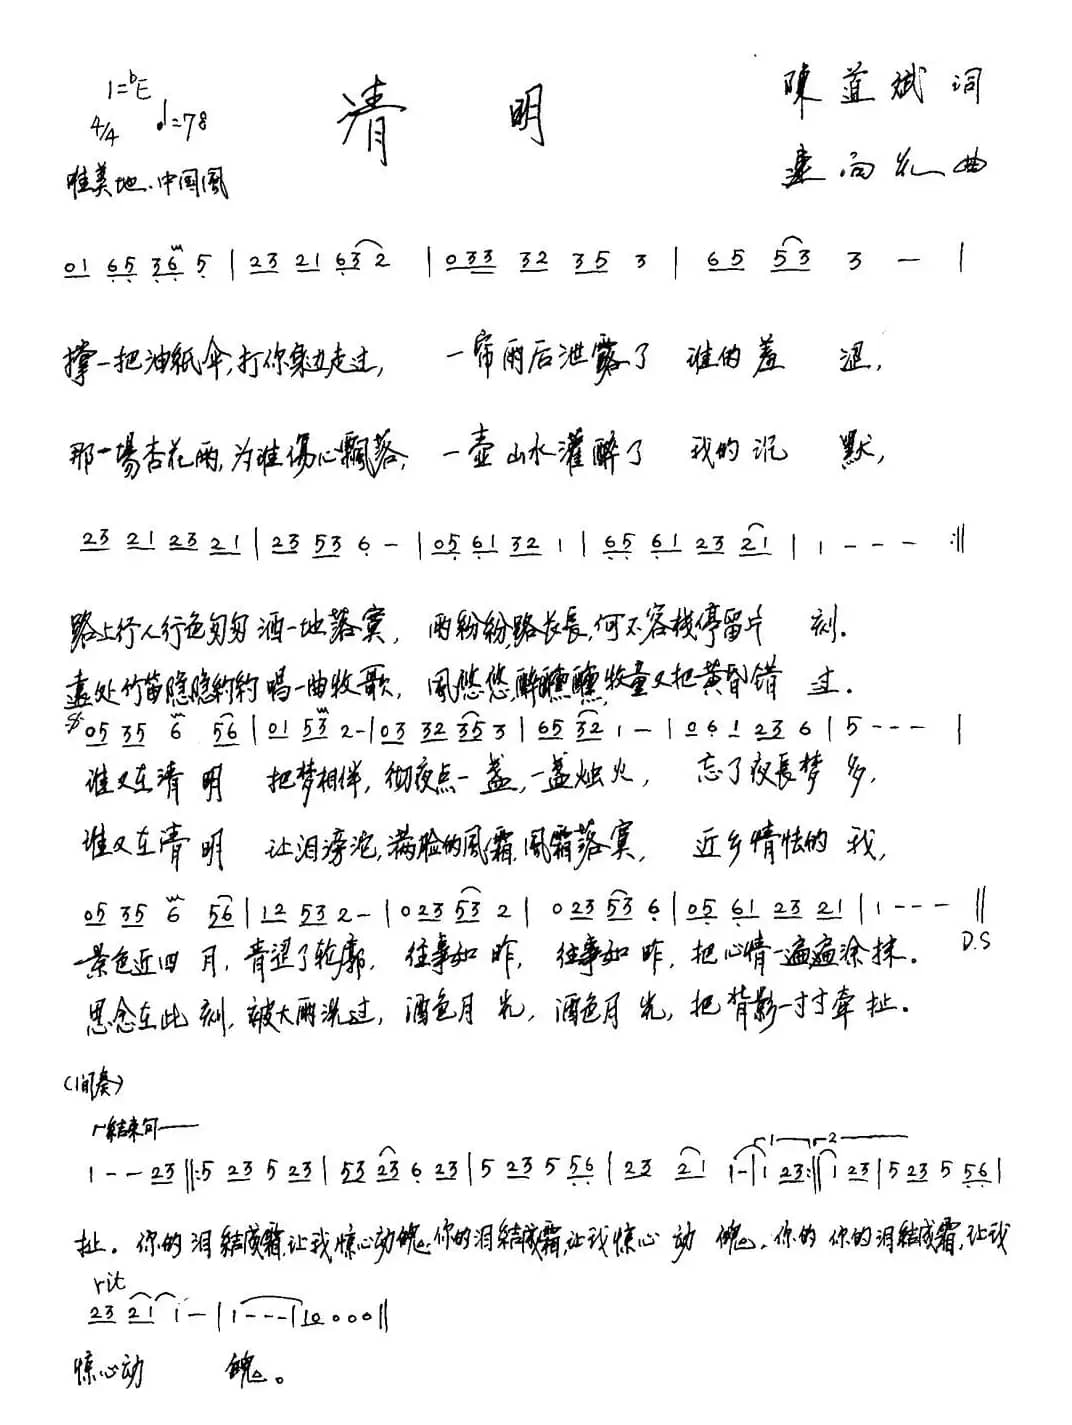 1=bE
4/4 ♩=78
清明
陳道斌 词
唯美地.中国風
向 曲
01 65 36 5 | 23 21 63 2 | 033 32 35 3 | 65 53 3 — |
撑一把油紙伞,打你身边走过, 一帘雨后泄露了 谁的羞 涩,
那一場杏花雨,为谁傷心飄落, 一壶山水灌醉了 我的沉 默,
23 21 23 21 | 23 53 6 - | 05 61 32 1 | 65 61 23 21 | 1 - - - :||
路上行人行色匆匆 洒一地落寞, 雨紛紛路长長,何不客栈停留片 刻.
遠处竹笛隐隐約約 唱一曲牧歌, 風悠悠,醉醺醺,牧童又把黄昏错 过.
05 35 6 56 | 01 53 2- | 03 32 35 3 | 65 32 1 — | 06 1 23 6 | 5 - - - |
谁又在清 明 把梦相伴, 彻夜点一 盏,一盏烛火, 忘了夜長梦 多,
谁又在清 明 让泪滂沱,满脸的風霜,風霜落寞, 近乡情怯的 我,
05 35 6 56 | 12 53 2 - | 0 23 53 2 | 0 23 53 6 | 05 61 23 21 | 1 - - - ||
D.S
一景色近四 月, 青涩了轮廓, 往事如 昨, 往事如 昨, 把心情一遍遍涂抹.
思念在此 刻, 被大雨洗过, 酒色月 光, 酒色月 光, 把背影一寸寸牵 扯.
(间奏)
結束句
1 - - 23 ||: 5 23 5 23 | 53 23 6 23 | 5 23 5 56 | 23 21 1 - | 1 23 :|| 1 23 | 5 23 5 56 |
1 2
扯. 你的泪結成霜,让我惊心动魄,你的泪結成霜,让我惊心 动 魄, 你的 你的泪結成霜,让我
rit
23 21 1 — | 1 - - - | 10 0 0 0 ||
惊心动 魄。